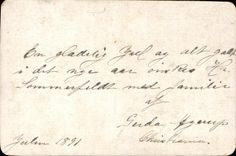 En glædelig Jul og alt godt
i det nye aar ønskes Hr.
Sommerfeldt med familie
af
Gerda
Christiania.
Julen 1891